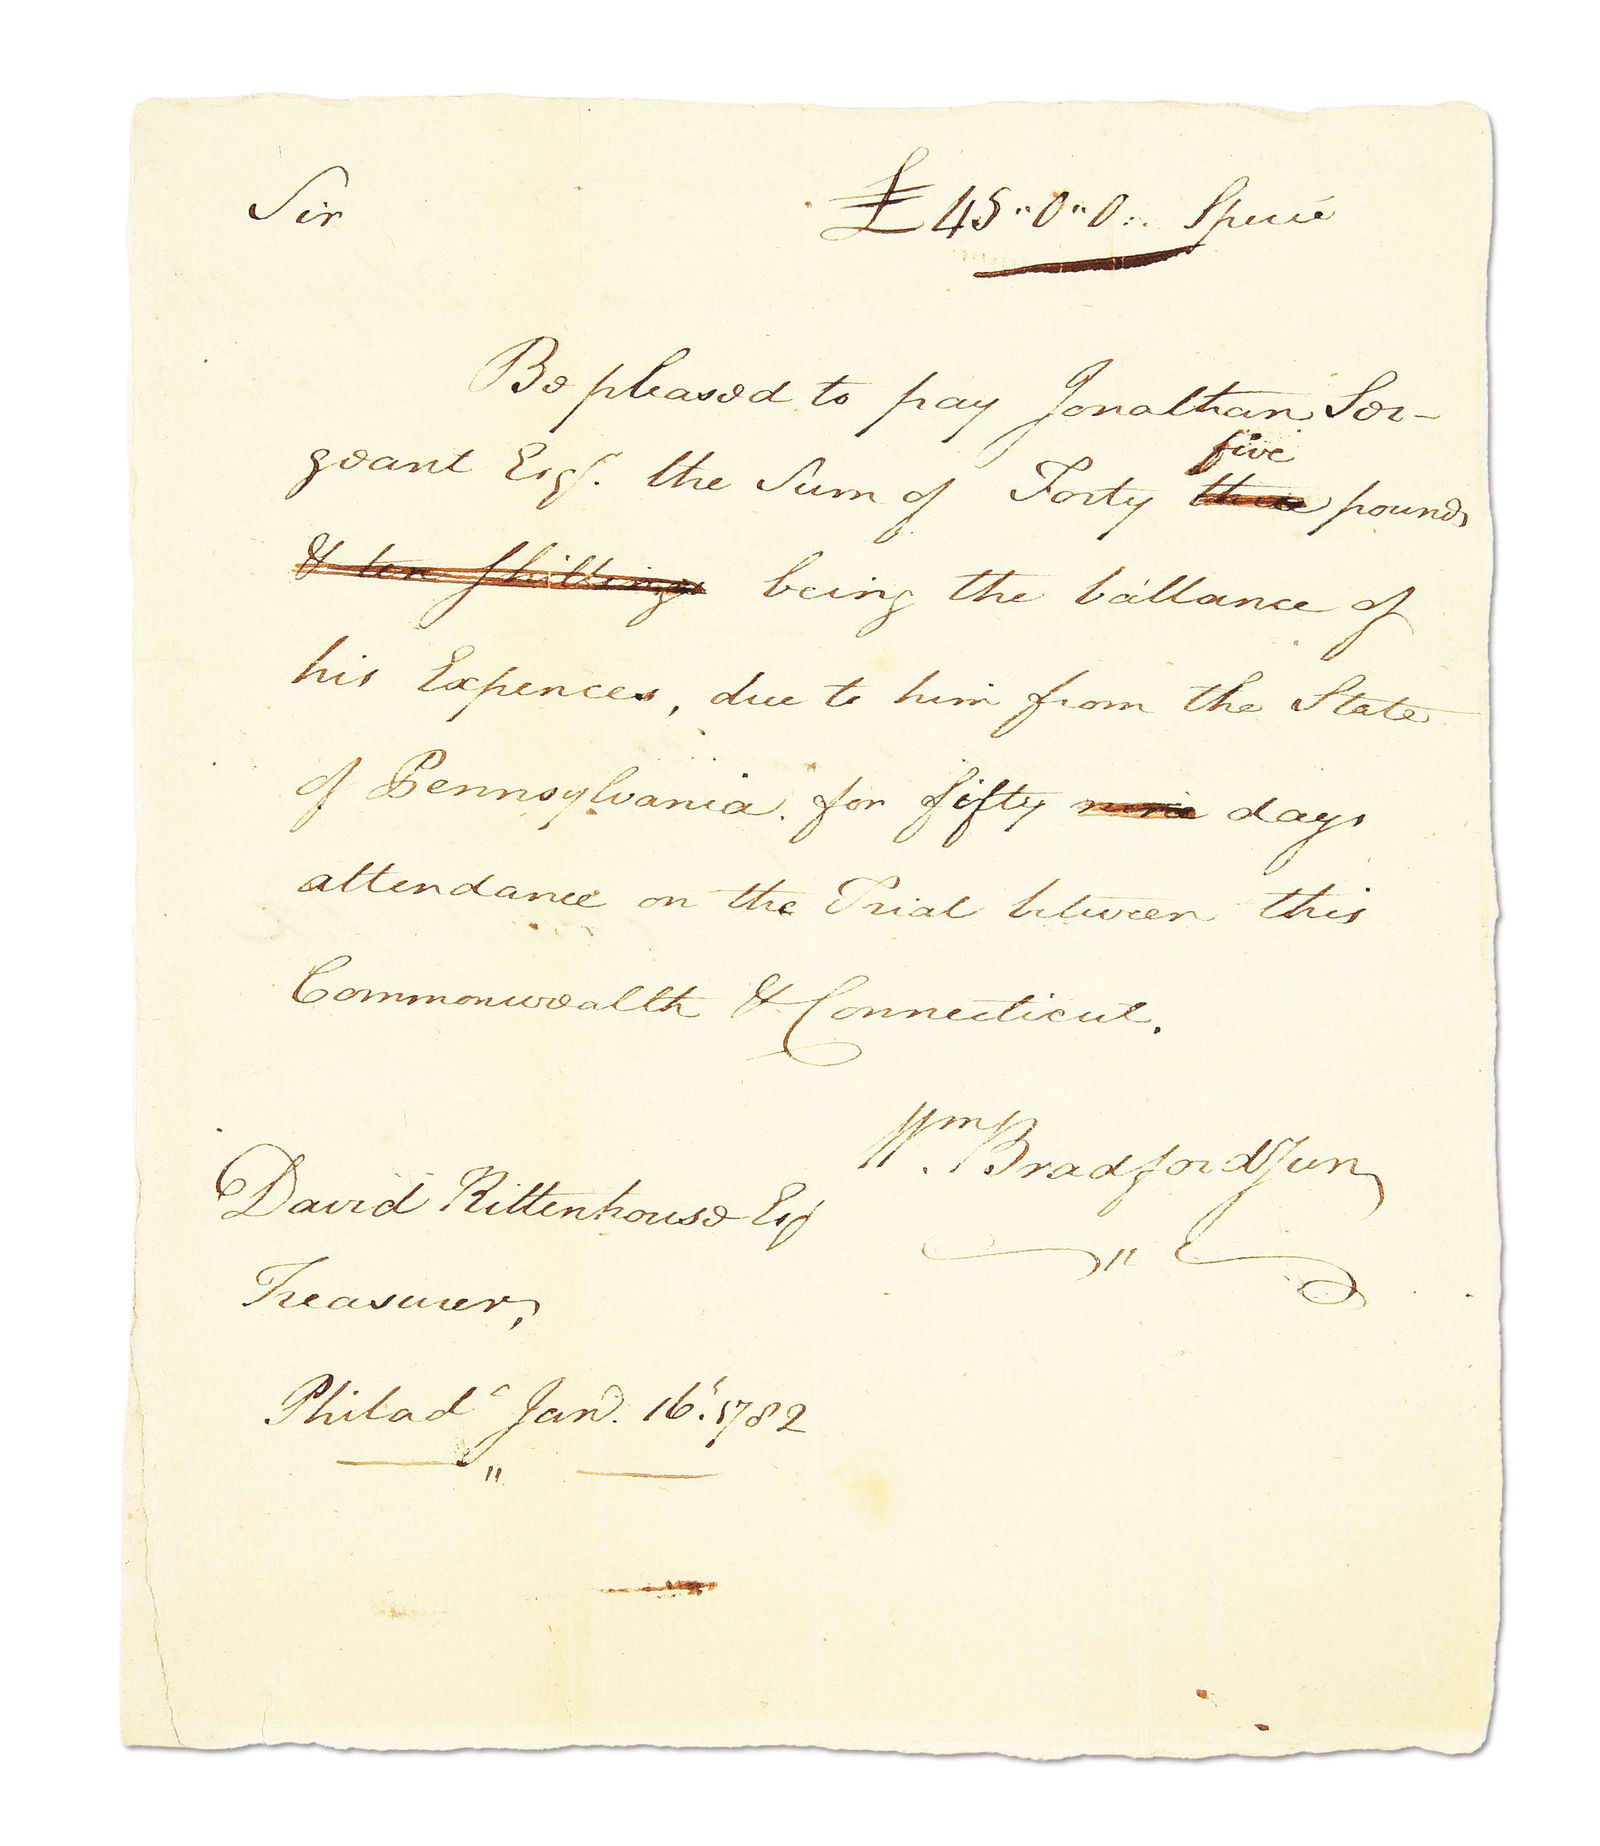 Sir £ 45"0"0 Specie
Be pleased to pay Jonathan Ser-
geant Esqr. the Sum of Forty three five pounds
& ten shillings being the ballance of
his Expences, due to him from the State
of Pennsylvania. for fifty nine days
attendance on the Trial between this
Commonwealth & Connecticut.
Wm. Bradford Jun
David Rittenhouse Esq
Treasurer,
Philada Jany. 16. 1782